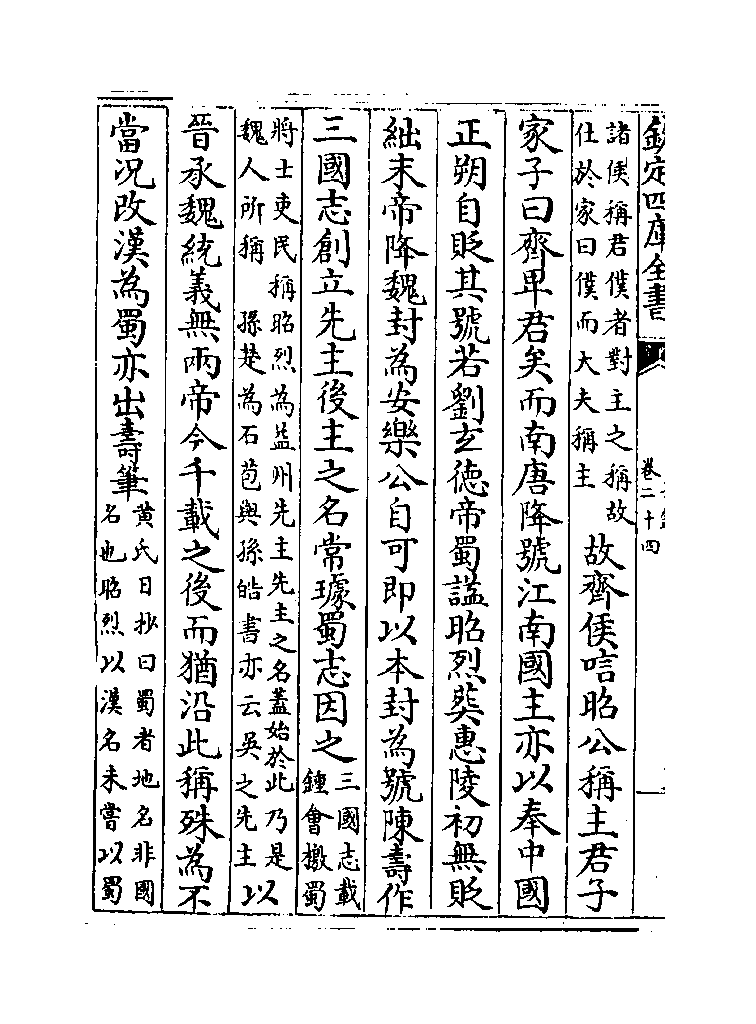 欽定四庫全書
卷二十四
諸侯稱君僕者對主之稱故
仕於家曰僕而大夫稱主
故齊侯唁昭公稱主君子
家子曰齊卑君矣而南唐降號江南國主亦以奉中國
正朔自貶其號若劉玄德帝蜀諡昭烈葬惠陵初無貶
絀末帝降魏封為安樂公自可即以本封為號陳壽作
三國志創立先主後主之名常璩蜀志因之
三國志載
鍾會檄蜀
將士吏民稱昭烈為益州先主先主之名蓋始於此乃是
魏人所稱 孫楚為石苞與孫皓書亦云吳之先主
以
晉承魏統義無兩帝今千載之後而猶沿此稱殊為不
當況改漢為蜀亦出壽筆
黃氏日抄曰蜀者地名非國
名也昭烈以漢名未嘗以蜀